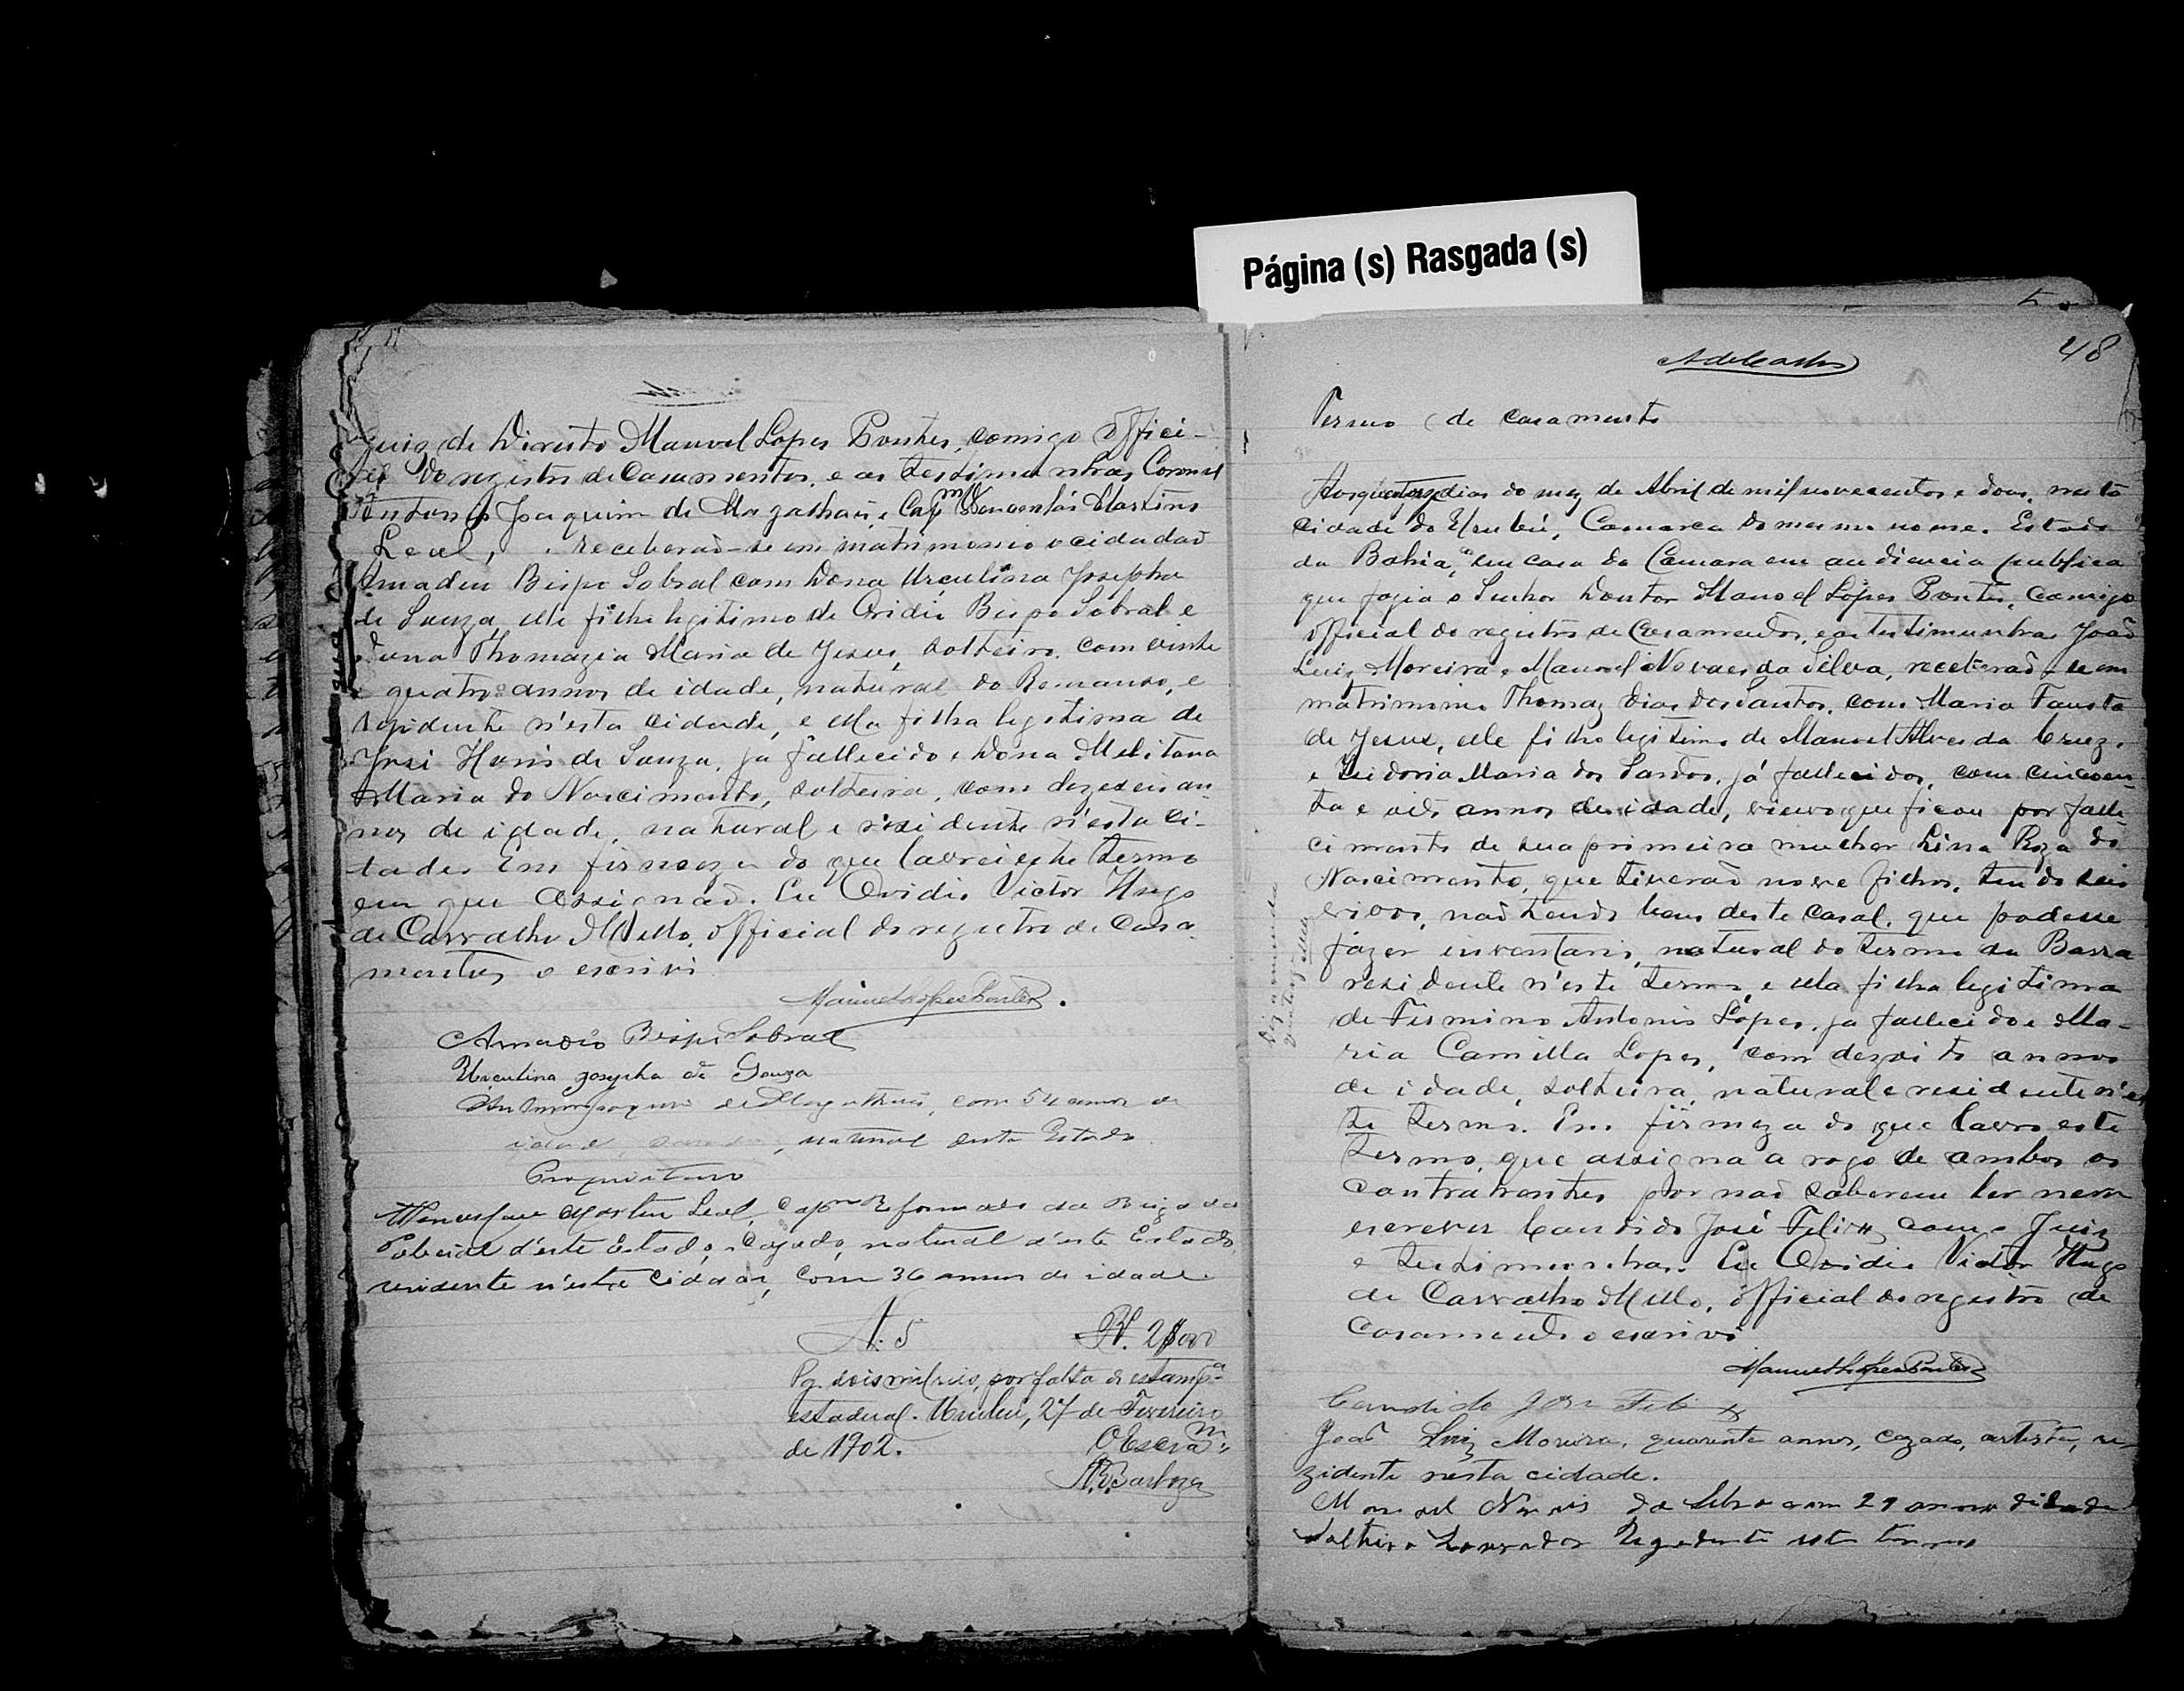 Página (s) Rasgada (s)
Juiz de Direito Manoel Lopes Pontes, comigo offici-
al do registro de Casamentos, e as testimunhas, Coronel
Antonio Joaquim de Magalhães, e Capm Wencesláo Martins
Leal, receberaõ-se em matrimonio o cidadaõ
Amadeu Bispo Sobral com Dona Urculina Josepha
de Souza, elle filho legitimo de Ovidio Bispo Sobral e
Dona Thomazia Maria de Jesus, solteiro, com vinte
e quatro annos de idade, natural do Remanso, e
residente n'esta cidade, e ella filha legitima de
José Honis de Souza, ja fallecido e Dona Melitana
Maria do Nascimento, solteira, com dezeseis an-
nos de idade, natural e residente n'esta ci-
dade. Em firmeza do que lavrei este termo
em que assignaõ. Eu Ovidio Victor Hugo
de Carvalho Mello, official do registro de Casa-
mentos o escrivi
Manoel Lopes Pontes.
Amadio Bispo Sobral
Urculina Josepha de Souza
Antonio Joaquim de Magalhães, com 54 annos de
idade, natural deste Estado
Proprietario
Martins Leal, Capm Reformado da Brigada
Policial d'este Estado, cazado, natural d'este Estado,
residente n'esta cidade, com 36 annos de idade.
N. 5 R. 2$000
Pg. dois mil reis, por falta de estampa
estadual. Urubú, 27 de Fevereiro
de 1902. O Escram
Barboza
48
Termo de casamento
Aos quatorze dias do mez de Abril de mil novecentos e dous, nesta
cidade do Urubú, Comarca do mesmo nome. Estado
da Bahia, em casa da Camara em audiencia publica
que fazia o Senhor Doutor Manoel Lopes Pontes, comigo
official do registro de Casamentos, e as testimunhas João
Luiz Moreira e Manoel Novaes da Silva, receberaõ-se em
matrimonio Thomaz Dias dos Santos, com Maria Fausta
de Jesus, elle filho legitimo de Manoel Alves da Cruz,
e Izidoria Maria dos Santos, já fallecidos, com cincoen-
ta e oito annos de idade, viuvo que ficou por falle-
cimento de sua primeira mulher Lina Roza do
Nascimento, que tiveraõ nove filhos, tendo seis
vivos, naõ tendo bens deste casal, que podesse
fazer inventario, natural do termo da Barra
residente n'este termo, e ella filha legitima
de Firmino Antonio Lopes, ja fallecido e Ma-
ria Camilla Lopes, com dezoito annos
de idade, solteira, natural e residente n'es
te termo. Em firmeza do que lavro este
termo, que assigna a rogo de ambos os
contratantes por naõ saberem ler nem
escrever Candido José Felix com o Juiz
e testimunhas. Eu Ovidio Victor Hugo
de Carvalho Mello, official do registro de
Casamento o escrivi
Manoel Lopes Pontes
Candido José Felix
Joaõ Luiz Moreira, quarenta annos, cazado, artista, re
zidente nesta cidade.
Manoel Novais da Silva com 29 annos didade
Solteiro Lavrador Rezedente neste termo